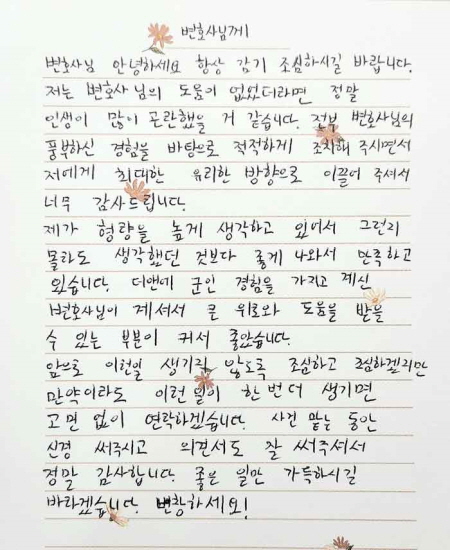 변호사님께
변호사님 안녕하세요 항상 감기 조심하시길 바랍니다.
저는 변호사님의 도움이 없었더라면 정말
인생이 많이 곤란했을 거 같습니다. 전부 변호사님의
풍부하신 경험을 바탕으로 적적하게 조치해 주시면서
저에게 최대한 유리한 방향으로 이끌어 주셔서
너무 감사드립니다.
제가 형량을 높게 생각하고 있어서 그런지
몰라도 생각했던 것보다 좋게 나와서 만족하고
있습니다. 더앤에 군인 경험을 가지고 계신
변호사님이 계셔서 큰 위로와 도움을 받을
수 있는 부분이 커서 좋았습니다.
앞으로 이런일 생기지 않도록 조심하고 조심하겠지만
만약이라도 이런 일이 한번 더 생기면
고민 없이 연락하겠습니다. 사건 맡는 동안
신경 써주시고 의견서도 잘 써주셔서
정말 감사합니다. 좋은 일만 가득하시길
바라겠습니다. 번창하세요!